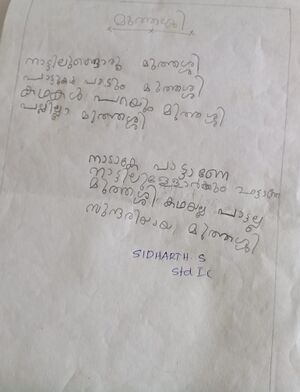 മുത്തശ്ശി
നാട്ടിലുണ്ടൊരു മുത്തശ്ശി
പാട്ടുകൾ പാടും മുത്തശ്ശി
കഥകൾ പറയും മുത്തശ്ശി
പല്ലില്ലാ മുത്തശ്ശി
പാട്ടാണേ
നാട്ടിലുള്ളോർക്കും
മുത്തശ്ശി കഥയല്ല പാട്ടല്ല
സുന്ദരിയായ മുത്തശ്ശി
SIDHARTH. S
Std I C